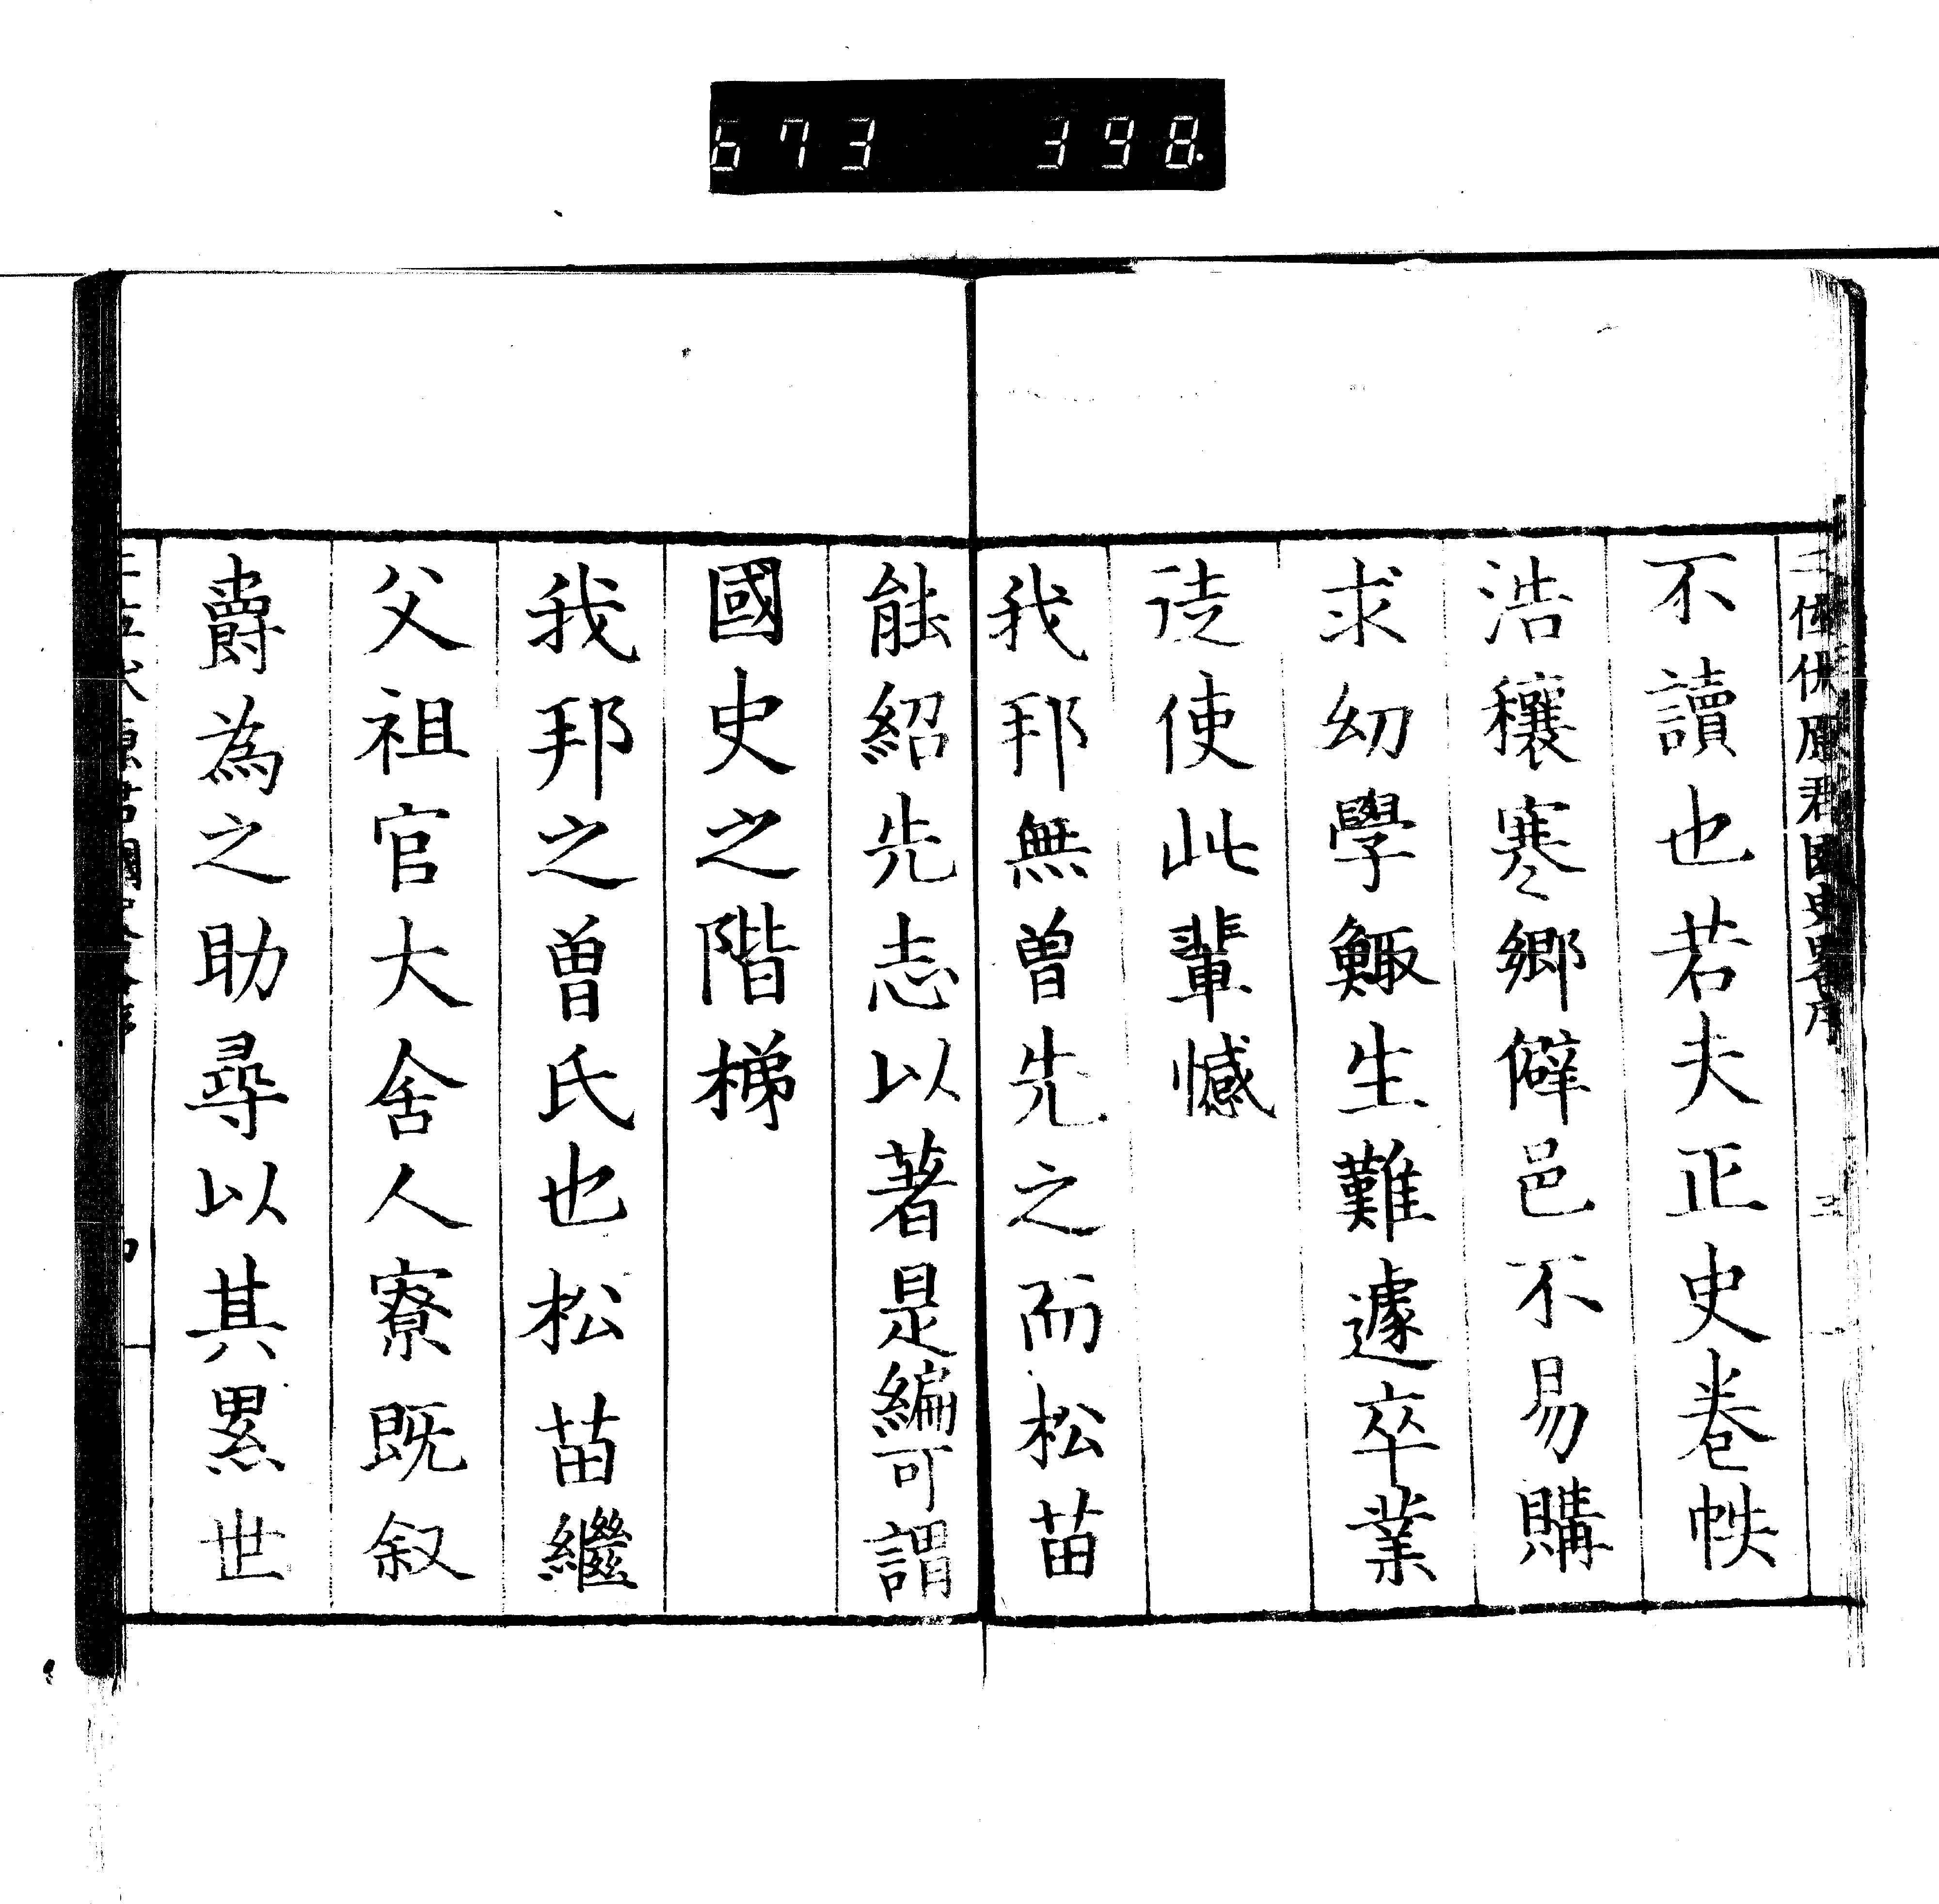 673 398
二位伏原君國史畧序
三
不讀也若夫正史卷帙
浩穰寒鄉僻邑不易購
求幼學鯫生難遽卒業
徒使此輩憾
我邦無曽先之而松苗
能紹先志以著是編可謂
國史之階梯
我邦之曽氏也松苗繼
父祖官大舍人寮既叙
爵為之助尋以其累世